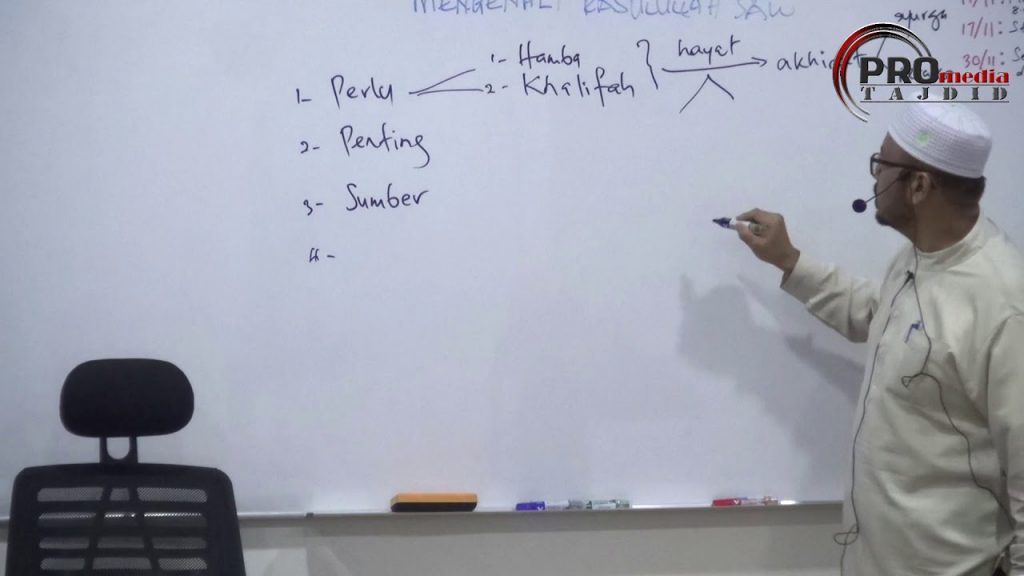 MENGENALI RASULULLAH SAW
syurga
17/11:
30/11:
1- Perlu
1- Hamba
2- Khalifah
hayat
akhirat
2- Penting
3- Sumber
4-
PROmedia
TAJDID